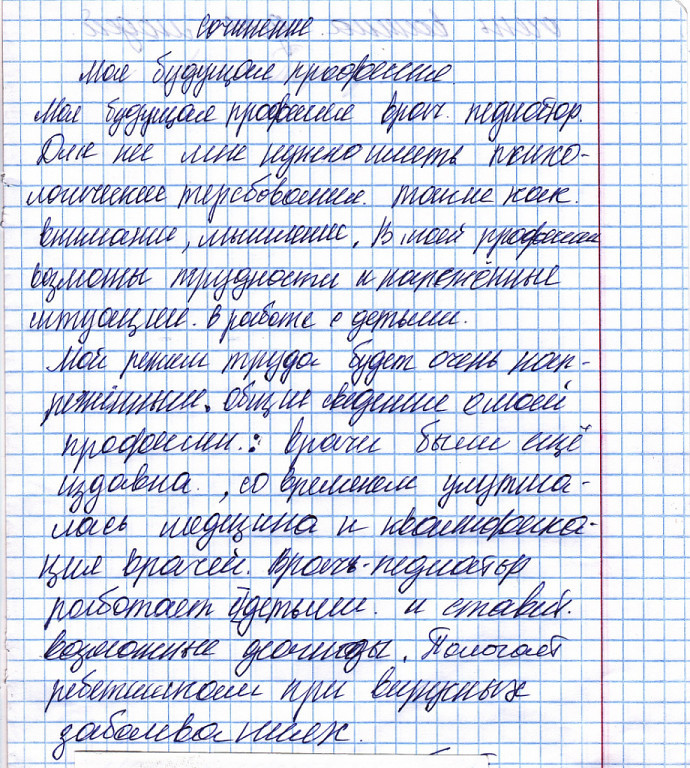 Сочинение.
Моя будущая профессия.
Моя будущая профессия врач. педиатор.
Для неё мне нужно иметь психо-
логические теребования. такие как.
внимание, мышление. В моей професии
возможны трудности и наряжённые
ситуации. в работе с детьми.
Мой режим труда будет очень нап-
ряжённым. Общие сведение о моей
професии.: врачи были ещё
издавна., со временем улутша-
лась медицина и квалифика-
ция врачей. Врачь-педиатор
работает с детьми. и ставит.
возможные деогнозы. Помогает
ребетишкам при вирусных
заболеваниях.